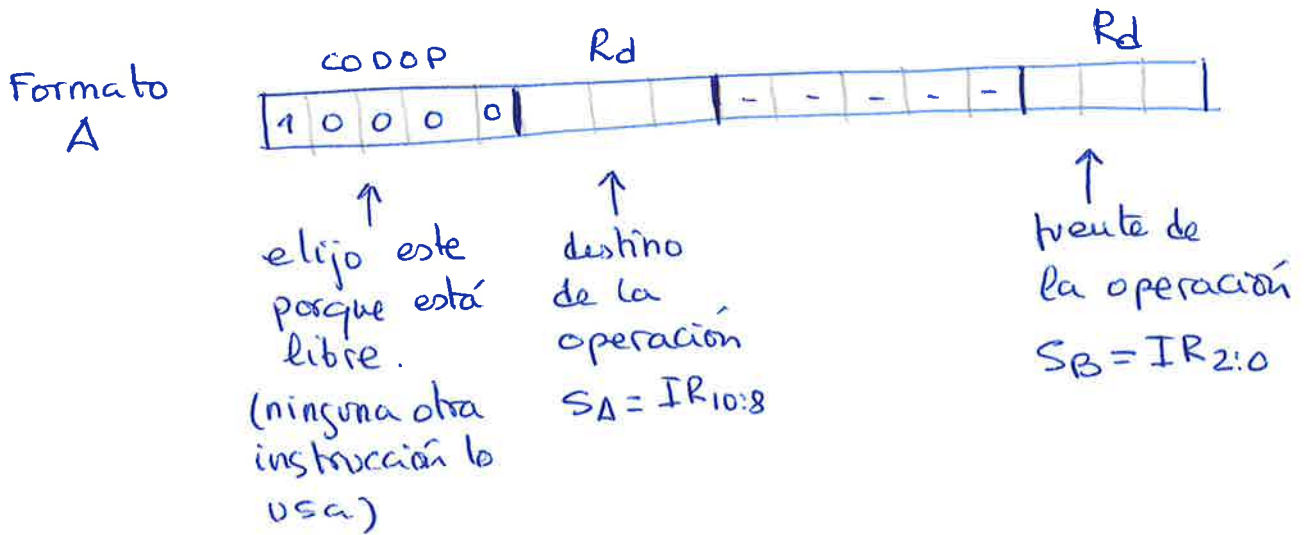 Formato
A
CODOP Rd Rd
1 0 0 0 0 - - - - -
↑ ↑ ↑
elijo este
porque está
libre.
(ninguna otra
instrucción lo
usa)
destino
de la
operación
SA = IR10:8
fuente de
la operación
SB = IR2:0